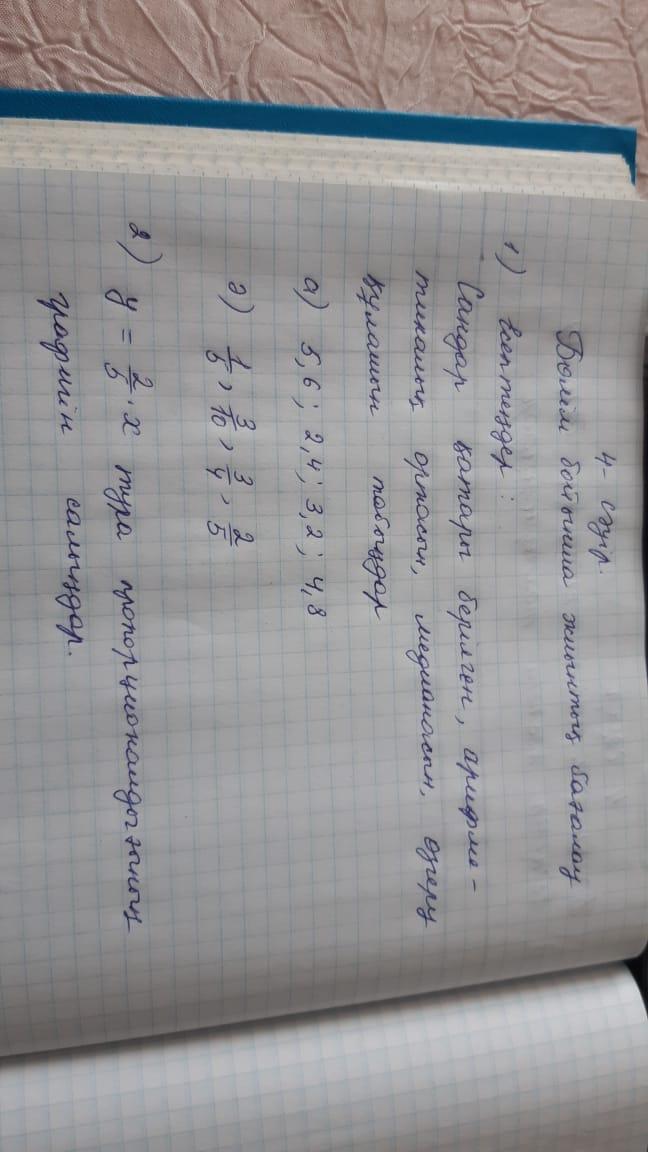 4- сәуір.
Бөлім бойынша жиынтық бағалау
1) Есептеңдер:
Сандар қатары берілген, арифме-
тикалық ортасын, медианасын, өзгеру
құлашын табыңдар
а) 5,6; 2,4; 3,2; 4,8
ә) 1/5, 3/10, 3/4, 2/5
2) y = 2/5 · x тура пропорционалдығының
графигін салыңдар.